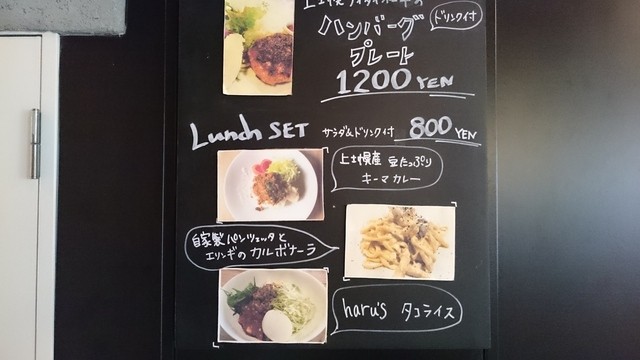 ハンバーグ
ドリンク付
プレート
1200 YEN
Lunch SET サラダ&ドリンク付 800 YEN
上士幌産 豆たっぷり
キーマカレー
自家製パンツェッタと
エリンギの カルボナーラ
haru's タコライス